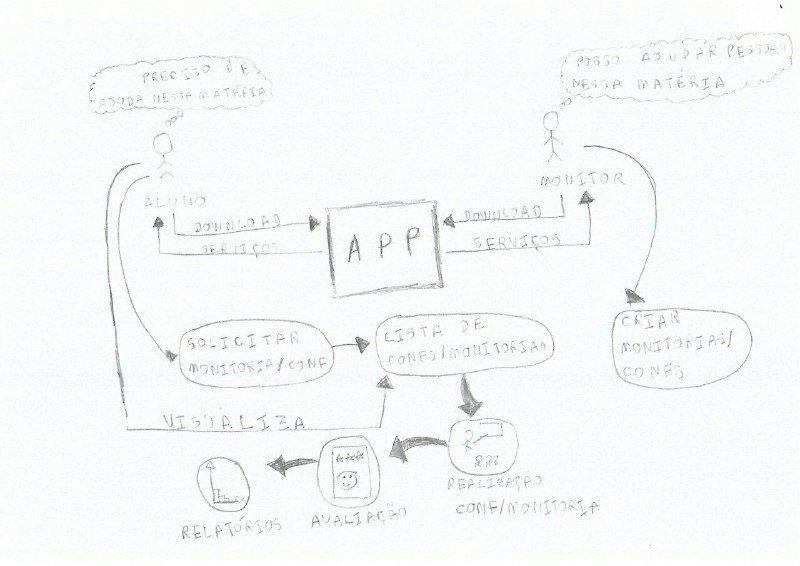 PRECISO DE
AJUDA NESSA MATÉRIA
POSSO AJUDAR PESSOAS
NESSA MATÉRIA
ALUNO
MONITOR
DOWNLOAD
SERVIÇOS
APP
DOWNLOAD
SERVIÇOS
SOLICITAR
MONITORIA/CONF
LISTA DE
CONFS/MONITORIAS
CRIAR
MONITORIAS/
CONFS
VISUALIZA
REALIZAÇÃO
CONF/MONITORIA
AVALIAÇÃO
RELATÓRIOS